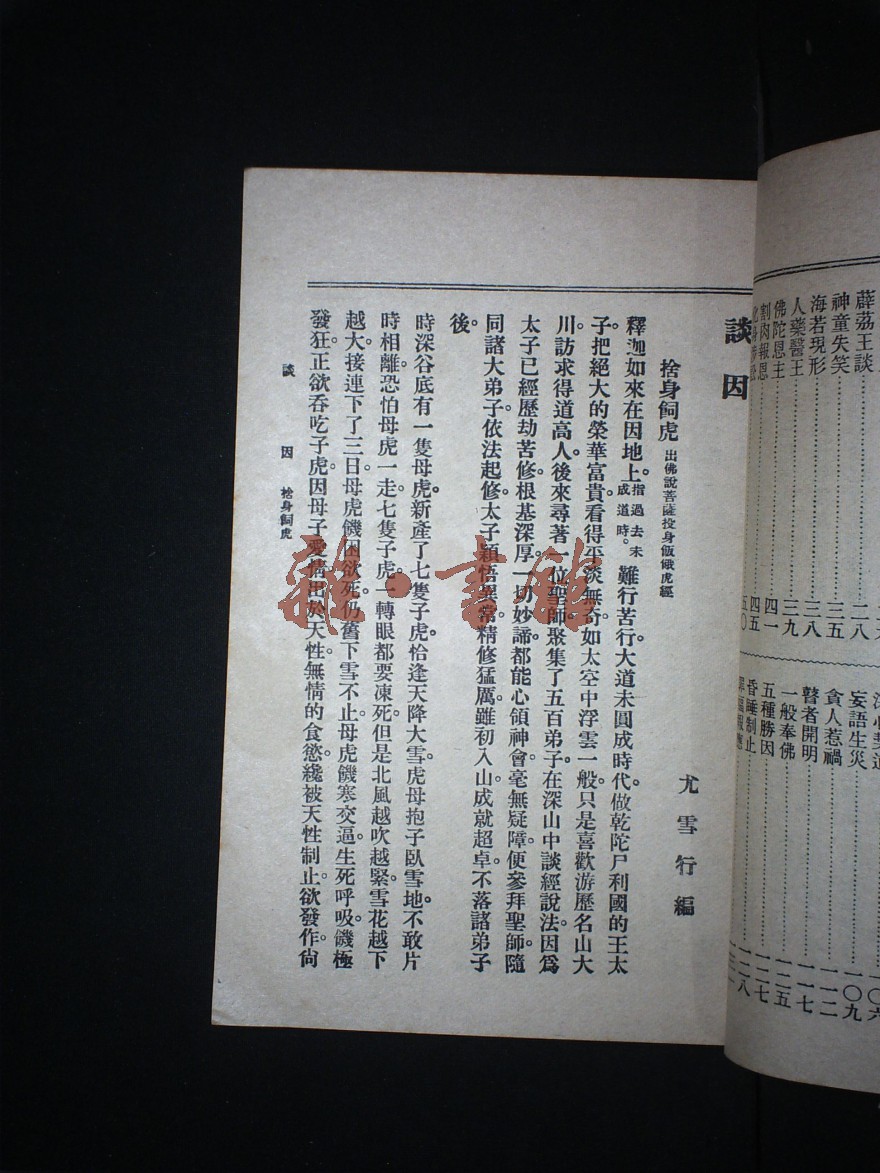 薜荔王談 二八
神童失笑 三五
海若現形 三八
人藥醫王 三九
佛陀恩主 四一
割肉報恩 四五
五〇
妄語生災 一〇九
貪人惹禍 一一二
瞽者開明 一一七
一般奉佛 一二五
五種勝因 一二七
昏睡制止 一二八
談因
尤雪行編
捨身飼虎 出佛說菩薩投身飯餓虎經
釋迦如來在因地上。指過去未成道時。難行苦行大道未圓成時代。做乾陀尸利國的王太
子。把絕大的榮華富貴看得平淡無奇如太空中浮雲一般。只是喜歡游歷名山大
川。訪求得道高人。後來尋著一位聖師。聚集了五百弟子。在深山中談經說法。因爲
太子已經歷劫苦修。根基深厚。一切妙諦都能心領神會。毫無疑障。便參拜聖師。隨
同諸大弟子依法起修。太子穎悟異常。精修猛厲。雖初入山。成就超卓。不落諸弟子
後。
時深谷底有一隻母虎。新產了七隻子虎。恰逢天降大雪。虎母抱子臥雪地。不敢片
時相離。恐怕母虎一走。七隻子虎。一轉眼都要凍死。但是北風越吹越緊。雪花越下
越大。接連下了三日。母虎饑困欲死。仍舊下雪不止。母虎饑寒交逼。生死呼吸。饑極
發狂。正欲吞吃子虎。因母子愛情出於天性。無情的食慾。纔被天性制止。欲發作。尙
談 因 捨身飼虎